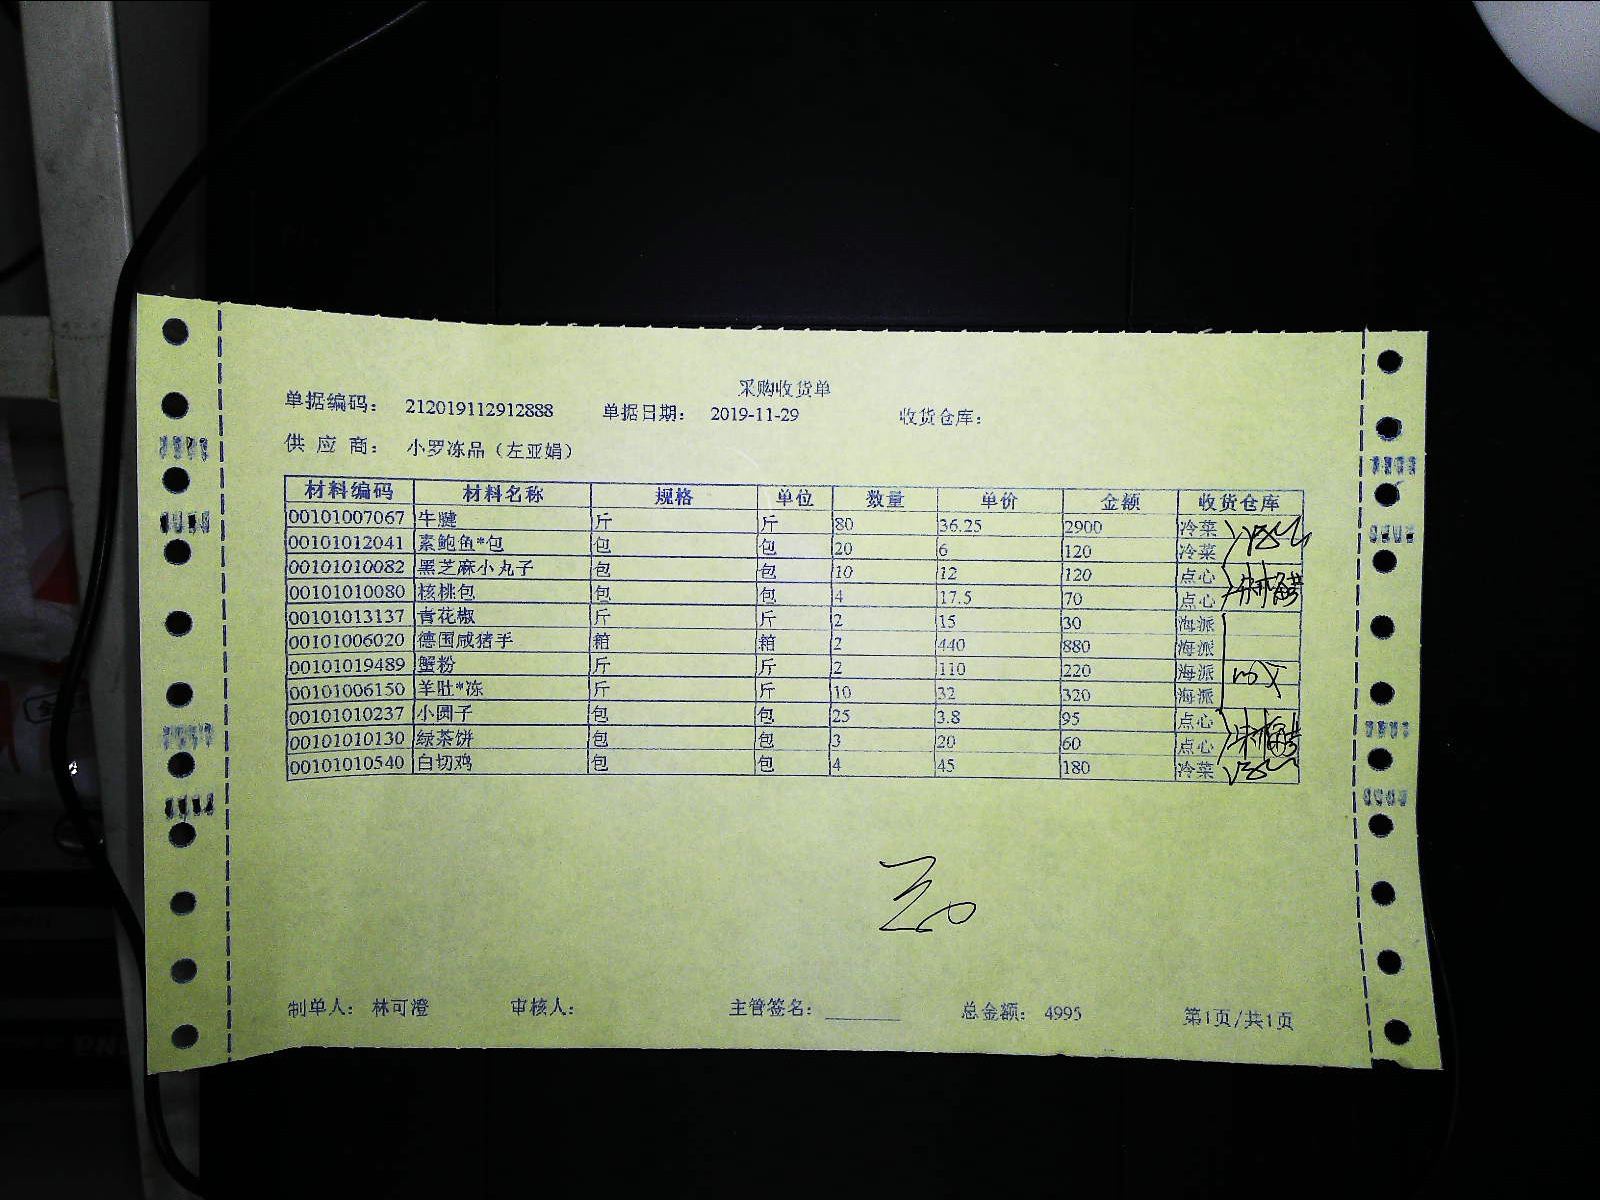 采购收货单
单据编码： 212019112912888 单据日期： 2019-11-29 收货仓库：
供 应 商： 小罗冻品（左亚娟）
材料编码 材料名称 规格 单位 数量 单价 金额 收货仓库
00101007067 牛腱 斤 斤 80 36.25 2900 冷菜
00101012041 素鲍鱼*包 包 包 20 6 120 冷菜
00101010082 黑芝麻小丸子 包 包 10 12 120 点心
00101010080 核桃包 包 包 4 17.5 70 点心
00101013137 青花椒 斤 斤 2 15 30 海派
00101006020 德国咸猪手 箱 箱 2 440 880 海派
00101019489 蟹粉 斤 斤 2 110 220 海派
00101006150 羊肚*冻 斤 斤 10 32 320 海派
00101010237 小圆子 包 包 25 3.8 95 点心
00101010130 绿茶饼 包 包 3 20 60 点心
00101010540 白切鸡 包 包 4 45 180 冷菜
制单人： 林可澄 审核人： 主管签名： 总金额： 4995 第1页/共1页